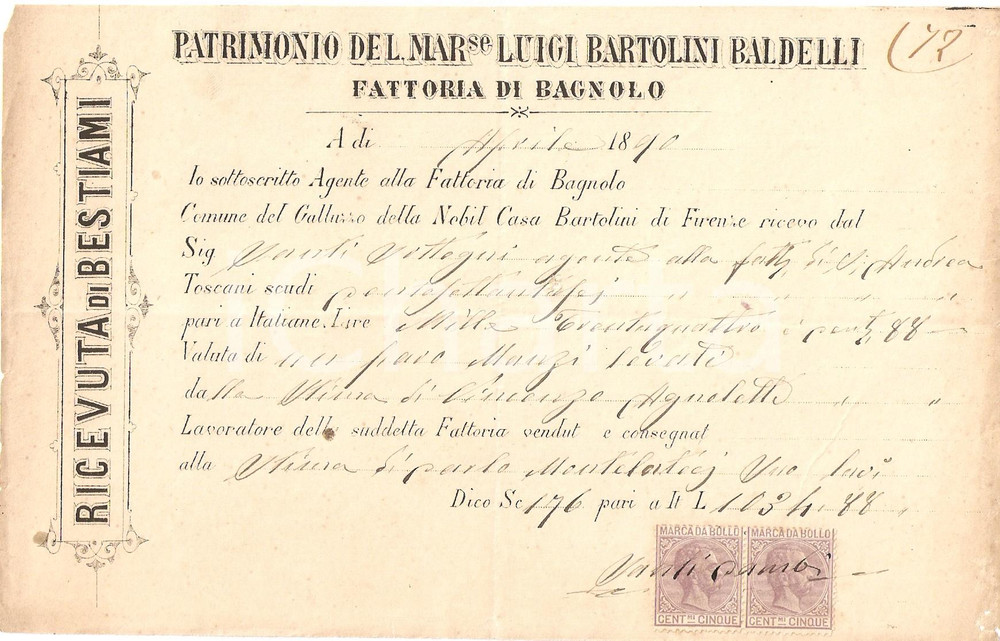 PATRIMONIO DEL MARse LUIGI BARTOLINI BALDELLI
(72
FATTORIA DI BAGNOLO
RICEVUTA DI BESTIAMI
A di Aprile 1890
Io sottoscritto Agente alla Fattoria di Bagnolo
Comune del Galluzzo della Nobil Casa Bartolini di Firenze ricevo dal
Sig Santi agente alla di S. Andrea
Toscani scudi centosettantasei " " " "
pari a Italiane Lire Mille Trentaquattro e 88
Valuta di un paro Manzi levati
dalla Stima di Vincenzo Agnoletti " "
Lavoratore della suddetta Fattoria vendut e consegnat
alla Stima di paolo suo
Dico Sc 176 pari a It L 1034.88
MARCA DA BOLLO MARCA DA BOLLO
Santi
CENT.MI CINQUE CENT.MI CINQUE